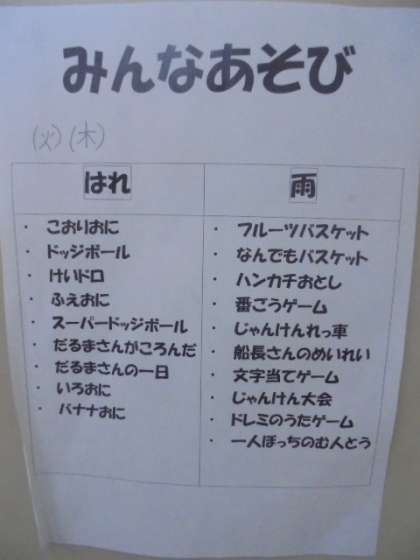 みんなあそび
(火)(木)
はれ
・ こおりおに
・ ドッジボール
・ けいドロ
・ ふえおに
・ スーパードッジボール
・ だるまさんがころんだ
・ だるまさんの一日
・ いろおに
・ バナナおに
雨
・ フルーツバスケット
・ なんでもバスケット
・ ハンカチおとし
・ 番ごうゲーム
・ じゃんけんれっ車
・ 船長さんのめいれい
・ 文字当てゲーム
・ じゃんけん大会
・ ドレミのうたゲーム
・ 一人ぼっちのむ人とう